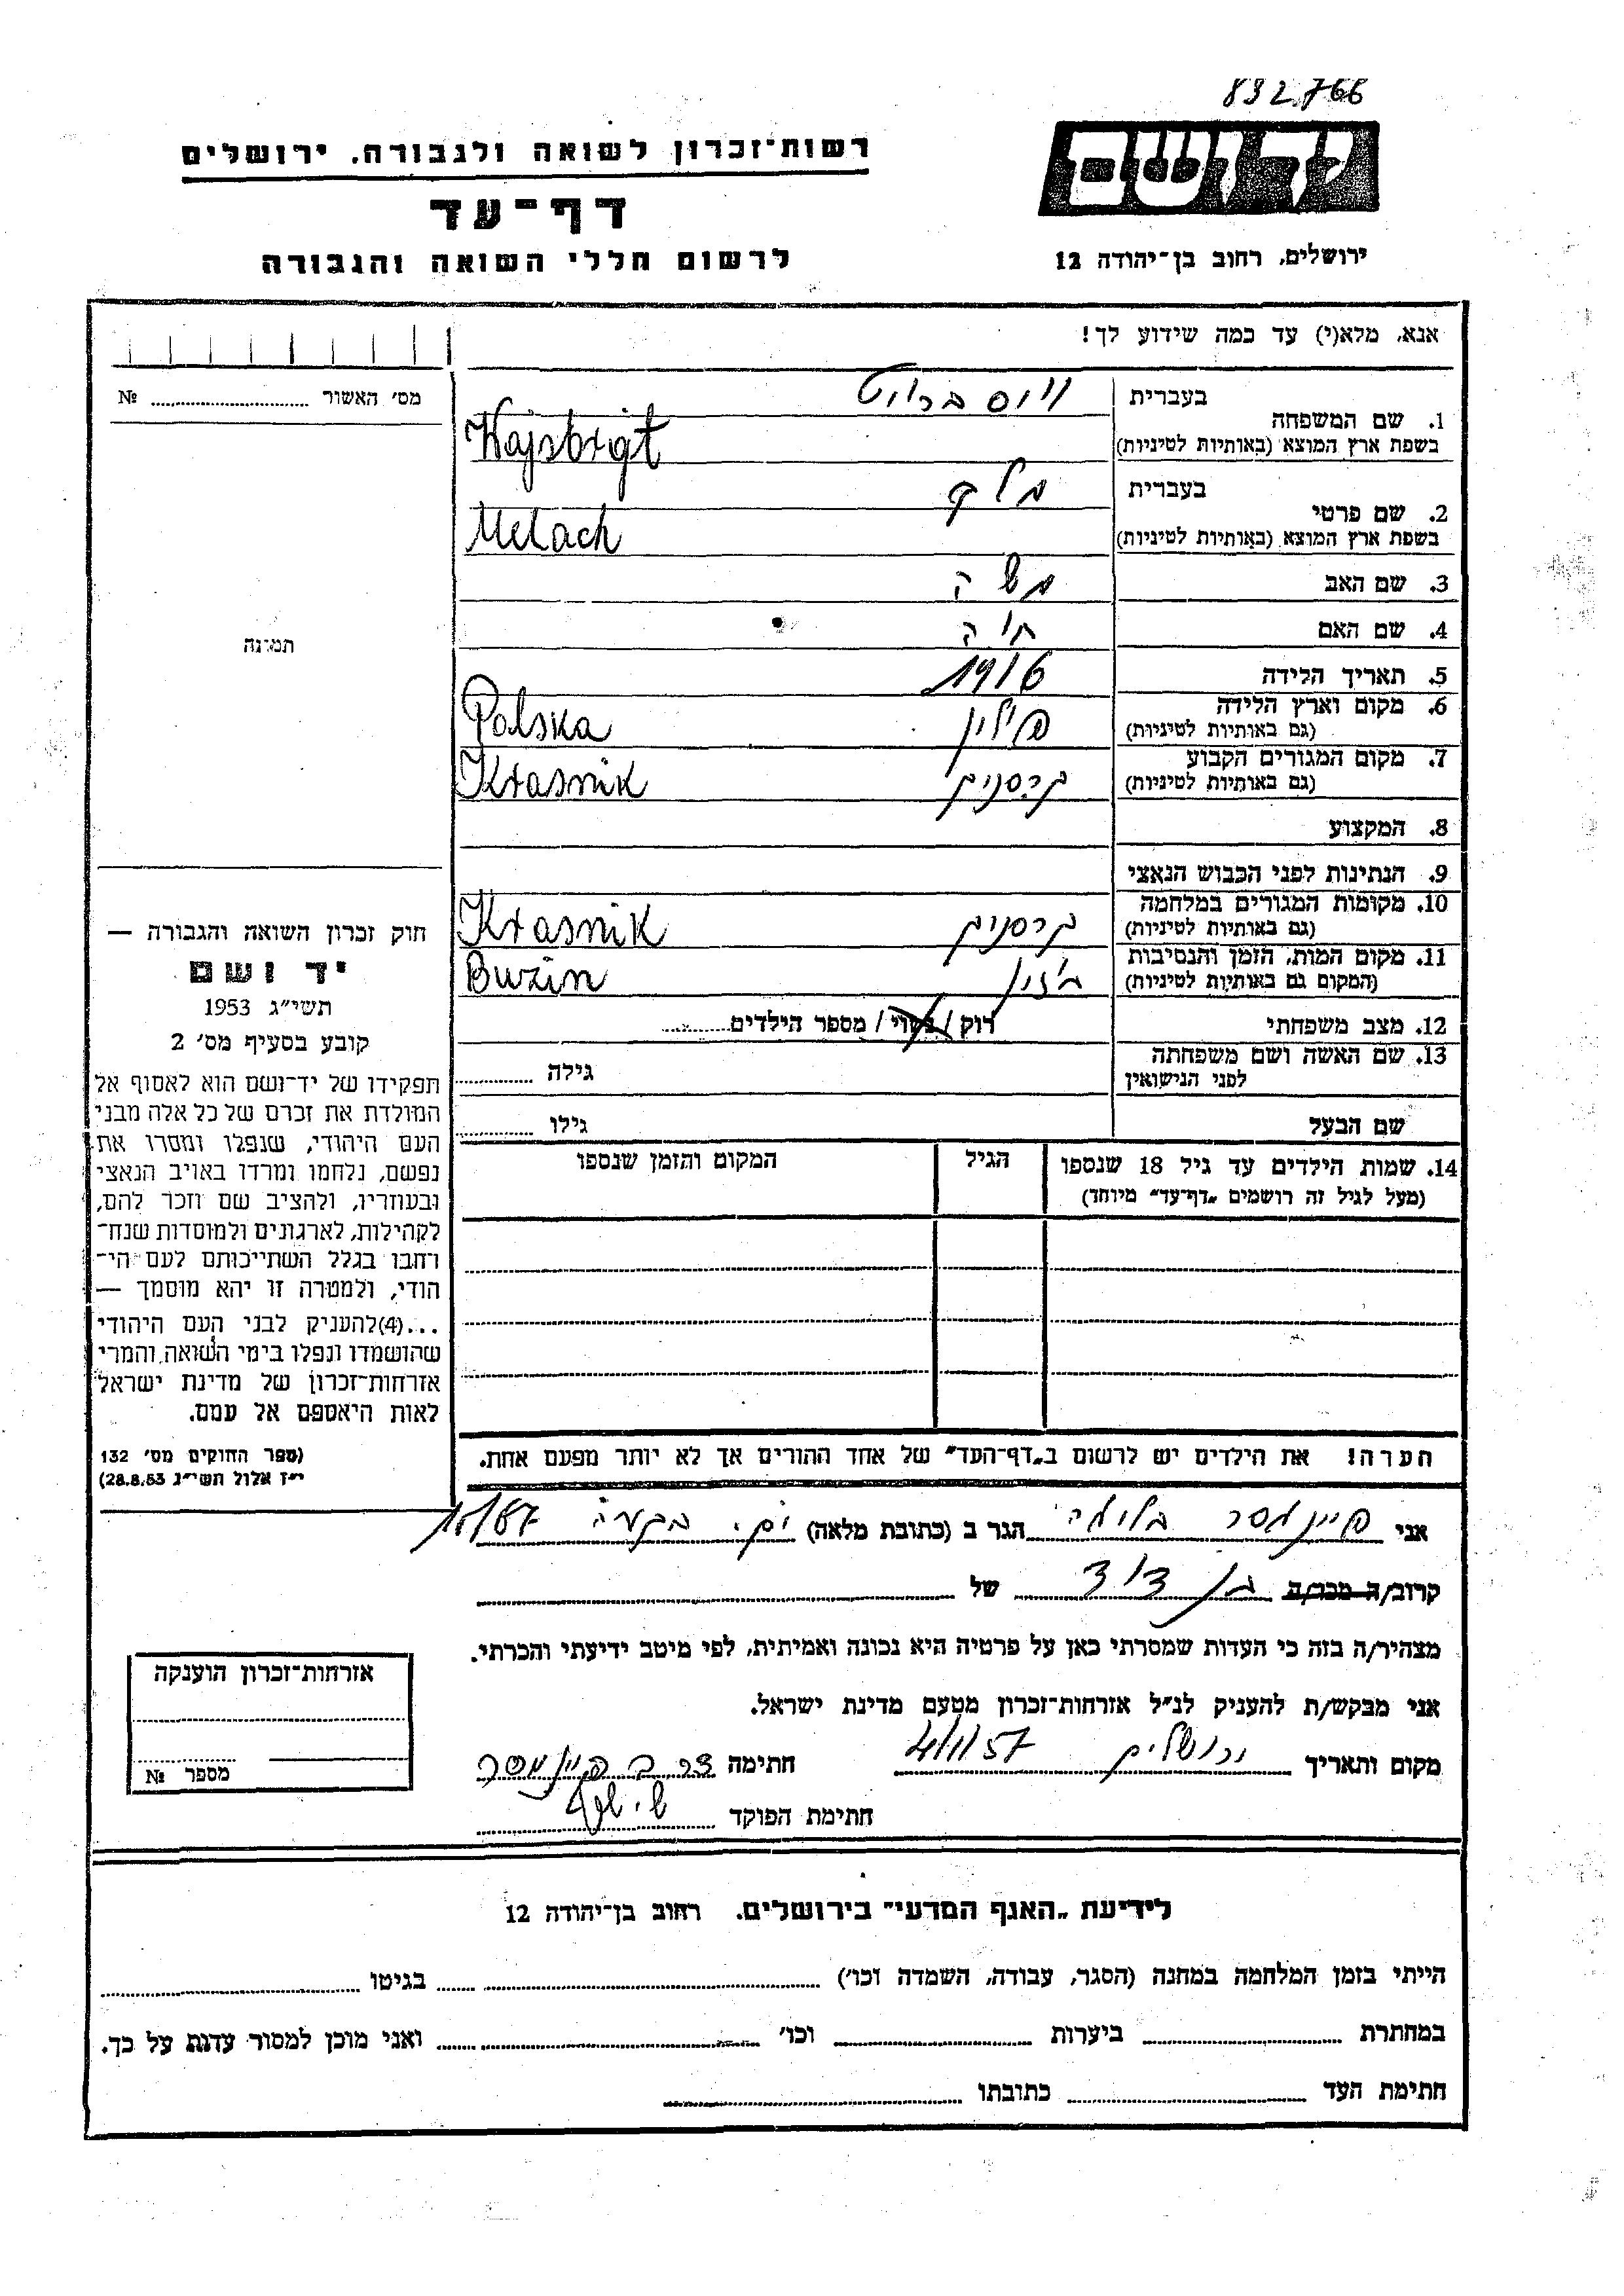 832.766
רשות־זכרון לשואה ולגבורה. ירושלים
ידושם
דף־עד
לרשום חללי השואה והגבורה
ירושלים. רחוב בן־יהודה 12
אנא, מלא(י) עד כמה שידוע לך!
מס׳ האשור № ........
1. שם המשפחה בעברית
בשפת ארץ המוצא (באותיות לטיניות) Wajsbrigt
2. שם פרטי בעברית מלך
בשפת ארץ המוצא (באותיות לטיניות) Melach
3. שם האב משה
4. שם האם חיה
5. תאריך הלידה 1916
6. מקום וארץ הלידה (גם באותיות לטיניות) פולין Polska
7. מקום המגורים הקבוע (גם באותיות לטיניות) קרסניק Krasnik
8. המקצוע
9. הנתינות לפני הכבוש הנאצי
10. מקומות המגורים במלחמה (גם באותיות לטיניות) קרסניק Krasnik
11. מקום המות, הזמן והנסיבות (המקום גם באותיות לטיניות) בוזין Buzin
12. מצב משפחתי רווק / נשוי / מספר הילדים........
13. שם האשה ושם משפחתה לפני הנישואין גילה ........
שם הבעל גילו ........
14. שמות הילדים עד גיל 18 שנספו הגיל המקום והזמן שנספו
(מעל לגיל זה רושמים „דף־עד״ מיוחד)
תמונה
חוק זכרון השואה והגבורה —
יד ושם
תשי״ג 1953
קובע בסעיף מס׳ 2
תפקידו של יד־ושם הוא לאסוף אל
המולדת את זכרם של כל אלה מבני
העם היהודי, שנפלו ומסרו את
נפשם, נלחמו ומרדו באויב הנאצי
ובעוזריו, ולהציב שם וזכר להם,
לקהילות, לארגונים ולמוסדות שנח־
רחבו בגלל השתייכותם לעם הי־
הודי, ולמטרה זו יהא מוסמך —
...(4) להעניק לבני העם היהודי
שהושמדו ונפלו בימי השואה והמרי
אזרחות־זכרון של מדינת ישראל
לאות היאספם אל עמם.
(ספר החוקים מס׳ 132
י״ז אלול תשי״ג 28.8.53)
הערה! את הילדים יש לרשום ב„דף־העד״ של אחד ההורים אך לא יותר מפעם אחת.
אני פיינמסר הגר ב (כתובת מלאה)
קרוב/ה מכר/ה בן דוד של ........
מצהיר/ה בזה כי העדות שמסרתי כאן על פרטיה היא נכונה ואמיתית, לפי מיטב ידיעתי והכרתי.
אני מבקש/ת להעניק לנ״ל אזרחות־זכרון מטעם מדינת ישראל.
מקום ותאריך ירושלים 4/11/57 חתימה פיינמסר
חתימת הפוקד
אזרחות־זכרון הוענקה
מספר №
לידיעת „האגף המדעי״ בירושלים. רחוב בן־יהודה 12
הייתי בזמן המלחמה במחנה (הסגר, עבודה, השמדה וכו׳) ........ בגיטו ........
במחתרת ........ ביערות ........ וכו׳ ........ ואני מוכן למסור עדות על כך.
חתימת העד ........ כתובתו ........